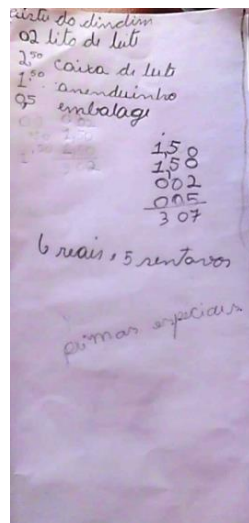 custo do dindim
02 lito de leti
2,50 caixa de leti
1,50 amenduinho
0,5 embalagi
1,50
1,50
002
005
3 07
6 reais, 5 sentavos
primas especiais